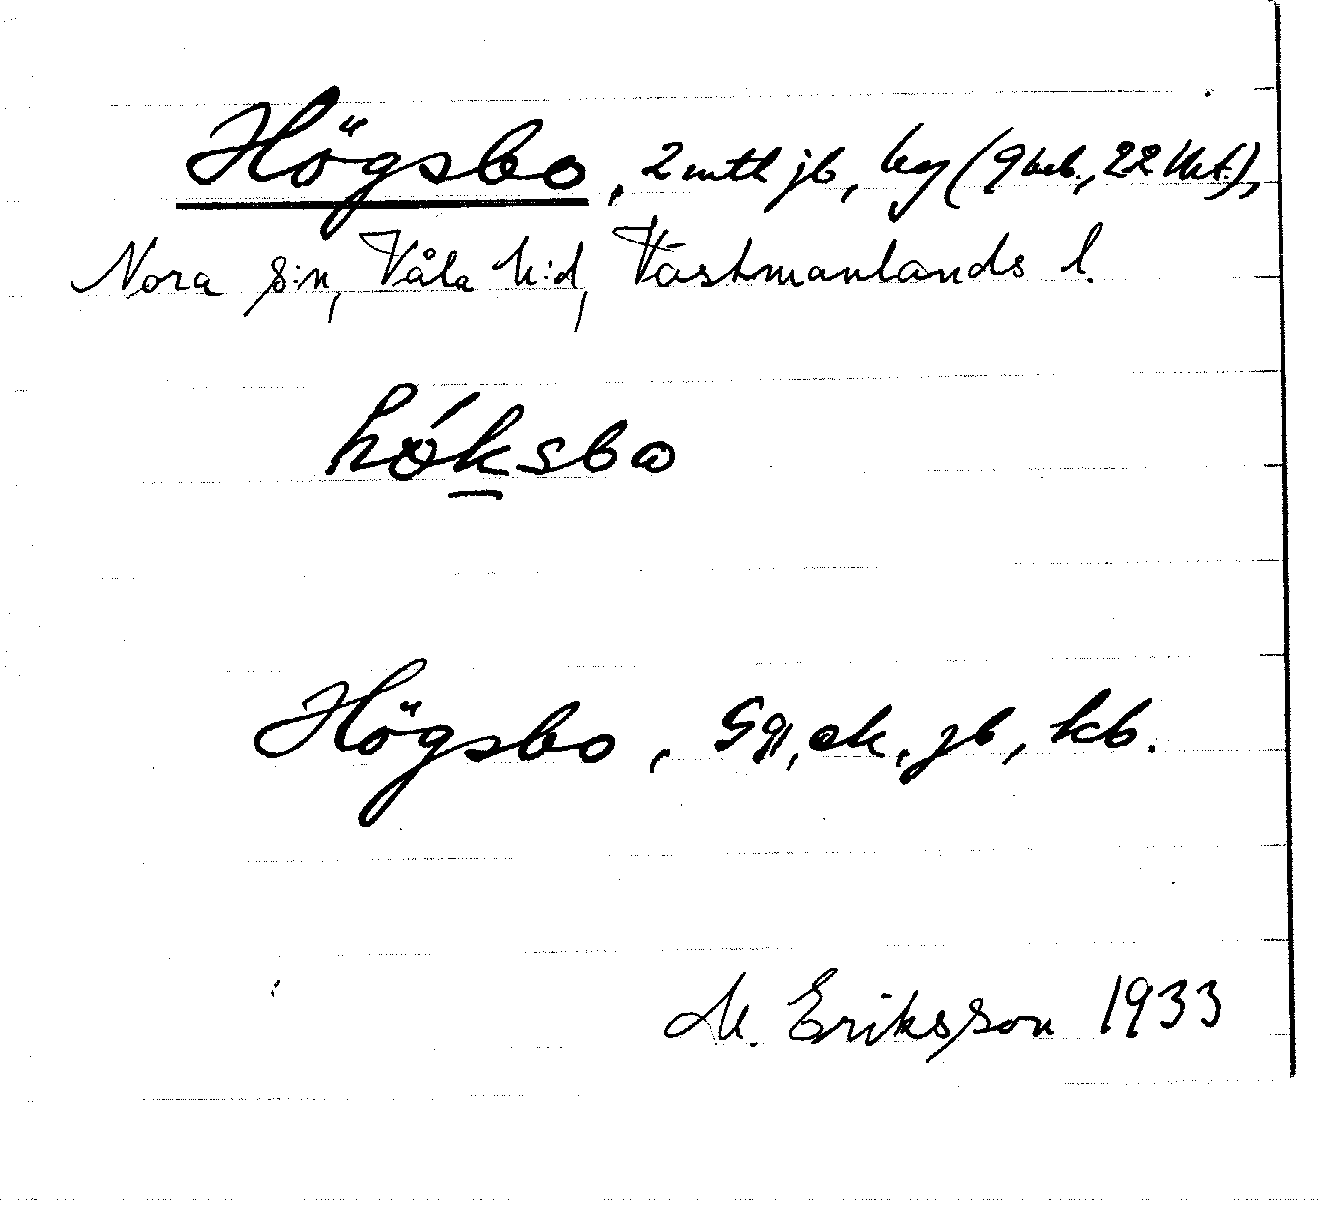 Högsbo, 2 mtl jb, by (9 beb., 22 lht.),
Nora s:n, Våla h:d, Västmanlands l.
hǿksbω
Högsbo, Gg, ek, jb, kb.
M. Eriksson 1933